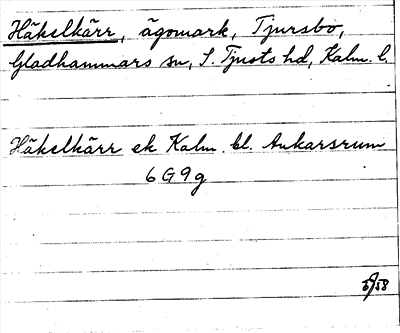 Häkelkärr, ägomark, Tjursbo,
Gladhammars sn, S. Tjusts hd, Kalm. l.
Häkelkärr ek Kalm. bl. Ankarsrum
6G9g